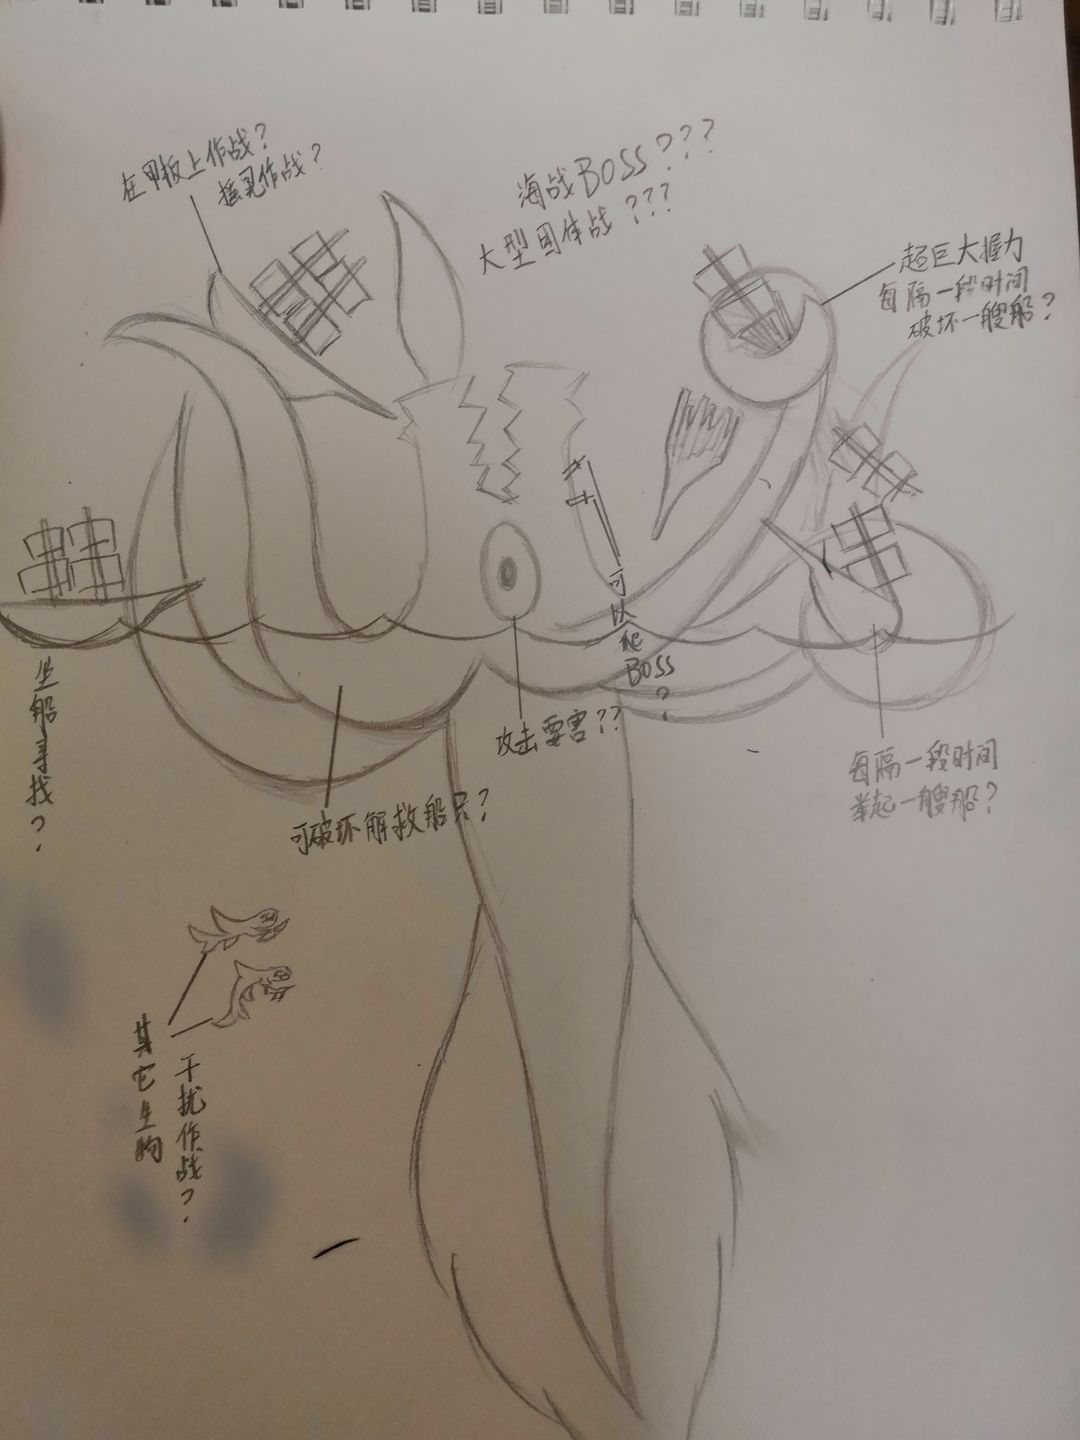 在甲板上作战？
摇晃作战？
海战BOSS？？？
大型团体战？？？
超巨大握力
每隔一段时间
破坏一艘船？
可以爬BOSS？
坐船寻找？
攻击要害？？
每隔一段时间
举起一艘船？
可破坏解救船只？
其它生物
干扰作战？